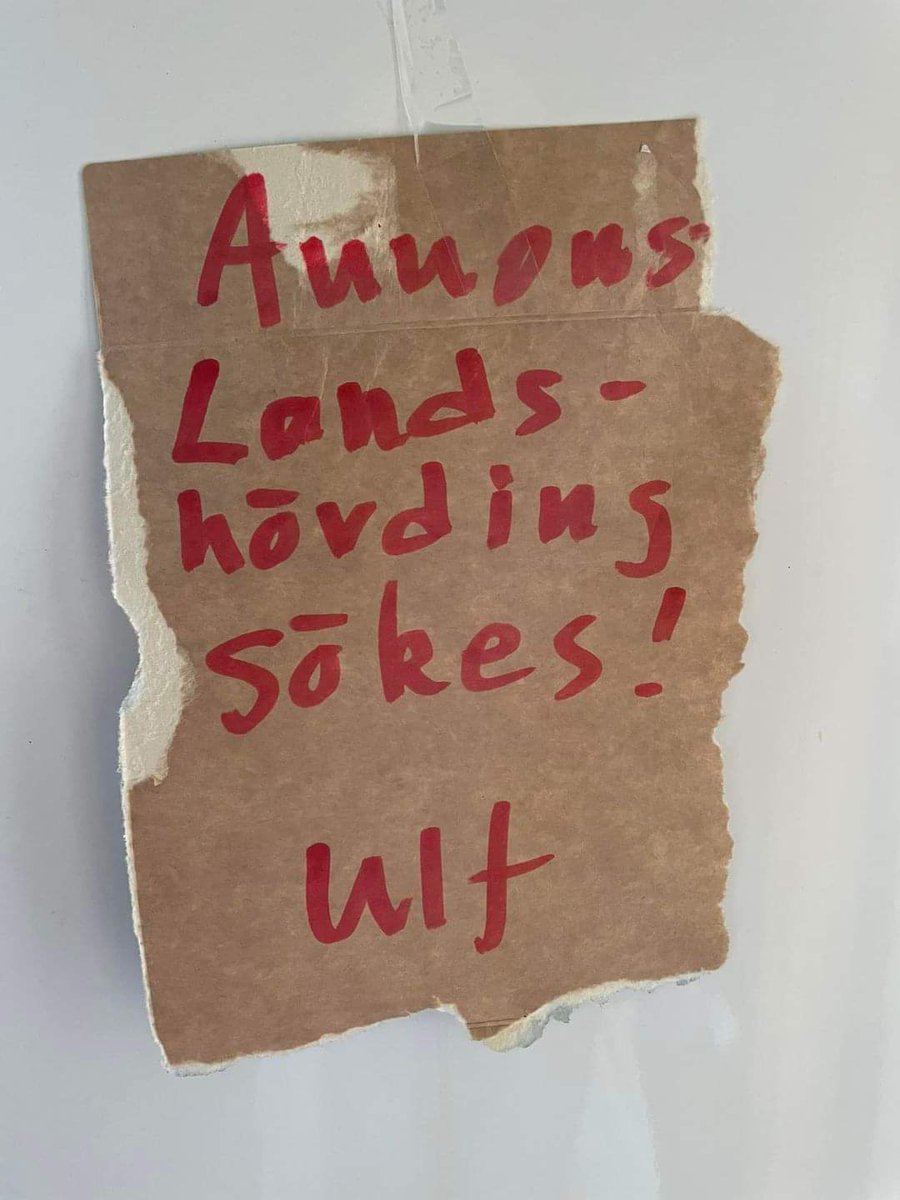 Annons
Lands-
hövding
sökes!
Ulf